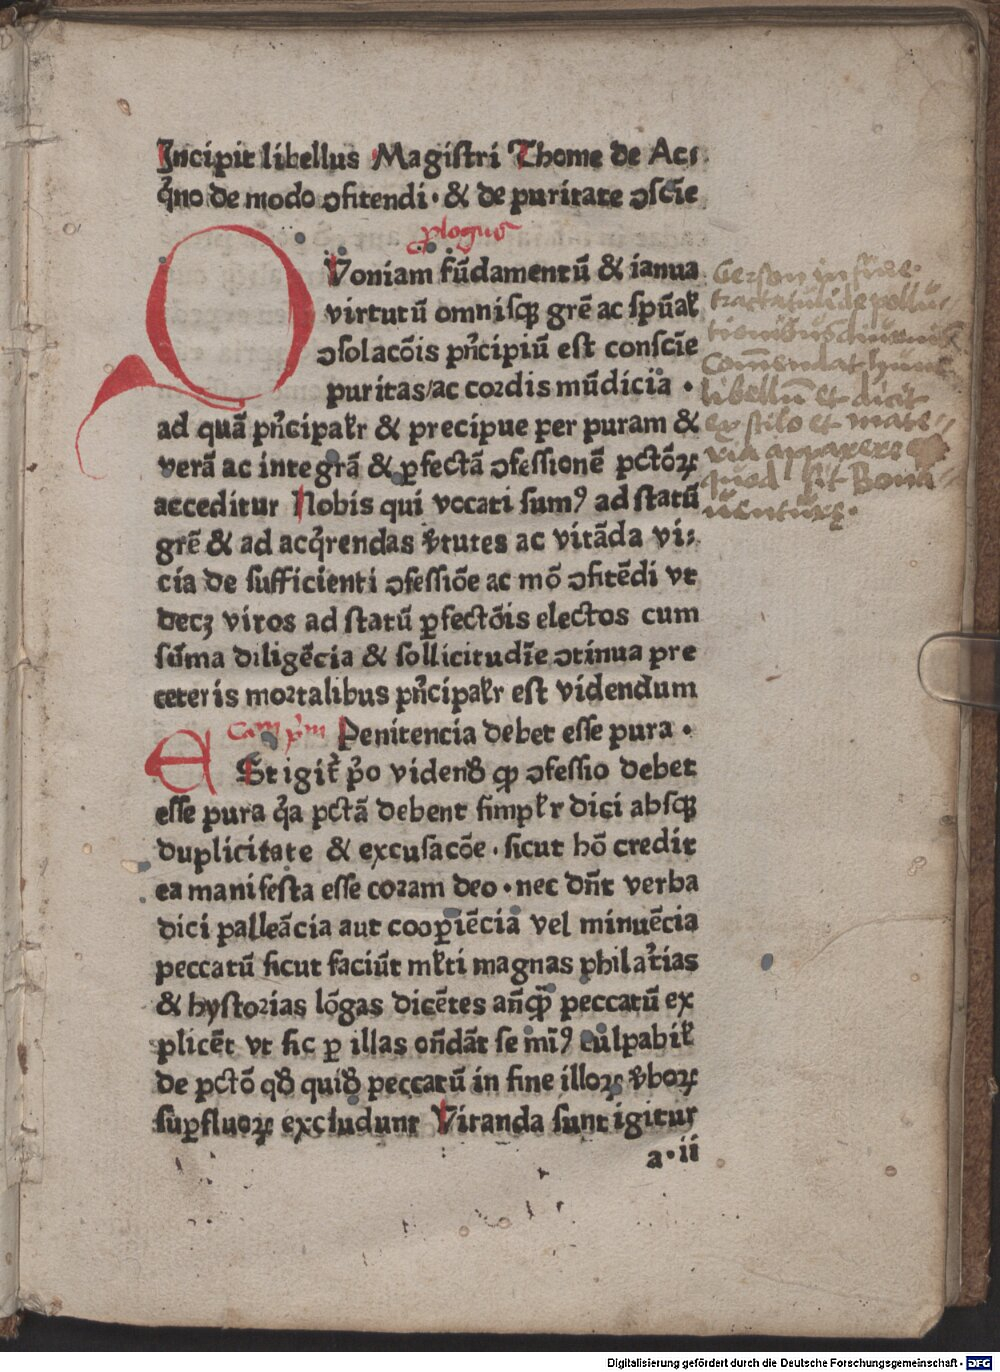 Incipit libellus Magistri Thome de Acs
q̓no de modo ɔfitendi · & de puritate ɔscie̅
ꝓlogus
QVoniam fu̅damentu̅ & ianua
virtutu̅ omnisqꝫ gre̅ ac spu̅al̓
ɔsolaco̅is pn̓cipiu̅ est conscie̅
puritas/ac cordis mu̅dicia ·
ad qua̅ pn̓cipal̓r & precipue per puram &
vera̅ ac integra̅ & ꝑfecta̅ ɔfessione̅ pcto̅ꝝ
acceditur Nobis qui vocati sumꝰ ad statu̅
gre̅ & ad acq̓rendas v̓tutes ac vita̅da vi⸗
cia de sufficienti ɔfessio̅e ac mo̅ ɔfite̅di vt
decꝫ viros ad statu̅ ꝑfecto̅is electos cum
su̅ma dilige̅cia & sollicitudi̅e ɔtinua pre
ceteris mortalibus pn̓cipal̓r est videndum
Cam pm̓ Penitencia debet esse pura ·
ESt igit̓ p̓o videnđ ꝙ ɔfessio debet
esse pura q̓a pcta̅ debent simpl̓r dici absqꝫ
duplicitate & excusaco̅e · sicut ho̅ credit
ea manifesta esse coram deo · nec dn̅t verba
dici pallea̅cia aut cooꝑie̅cia vel minue̅cia
peccatu̅ sicut faciu̅t ml̓ti magnas philat̓ias
& hystorias lo̅gas dice̅tes an̅ꝙ̅ peccatu̅ ex
plice̅t vt sic ꝑ illas on̅da̅t se mi̅ꝰ culpabil̓
de pcto̅ qđ quiđ peccatu̅ in fine illoꝝ v̓boꝝ
suꝑfluoꝝ excludunt Vitanda sunt igitur
a · ii
Gerson in fine
tractatuli de pollu⸗
tionibus diurnis
Com̅endat hunc
libellu̅ et dicit
ex stilo et mate⸗
ria apparere
quod sit Bona⸗
uenturę ·
Digitalisierung gefördert durch die Deutsche Forschungsgemeinschaft · DFG